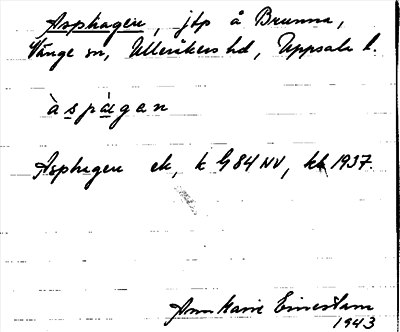 Asphagen, jtp å Brunna,
Vänge sn, Ulleråkers hd, Uppsala l.
àspàgan
Asphagen ek, k G84NV, kk 1937.
Ann Marie Einerstam
1943